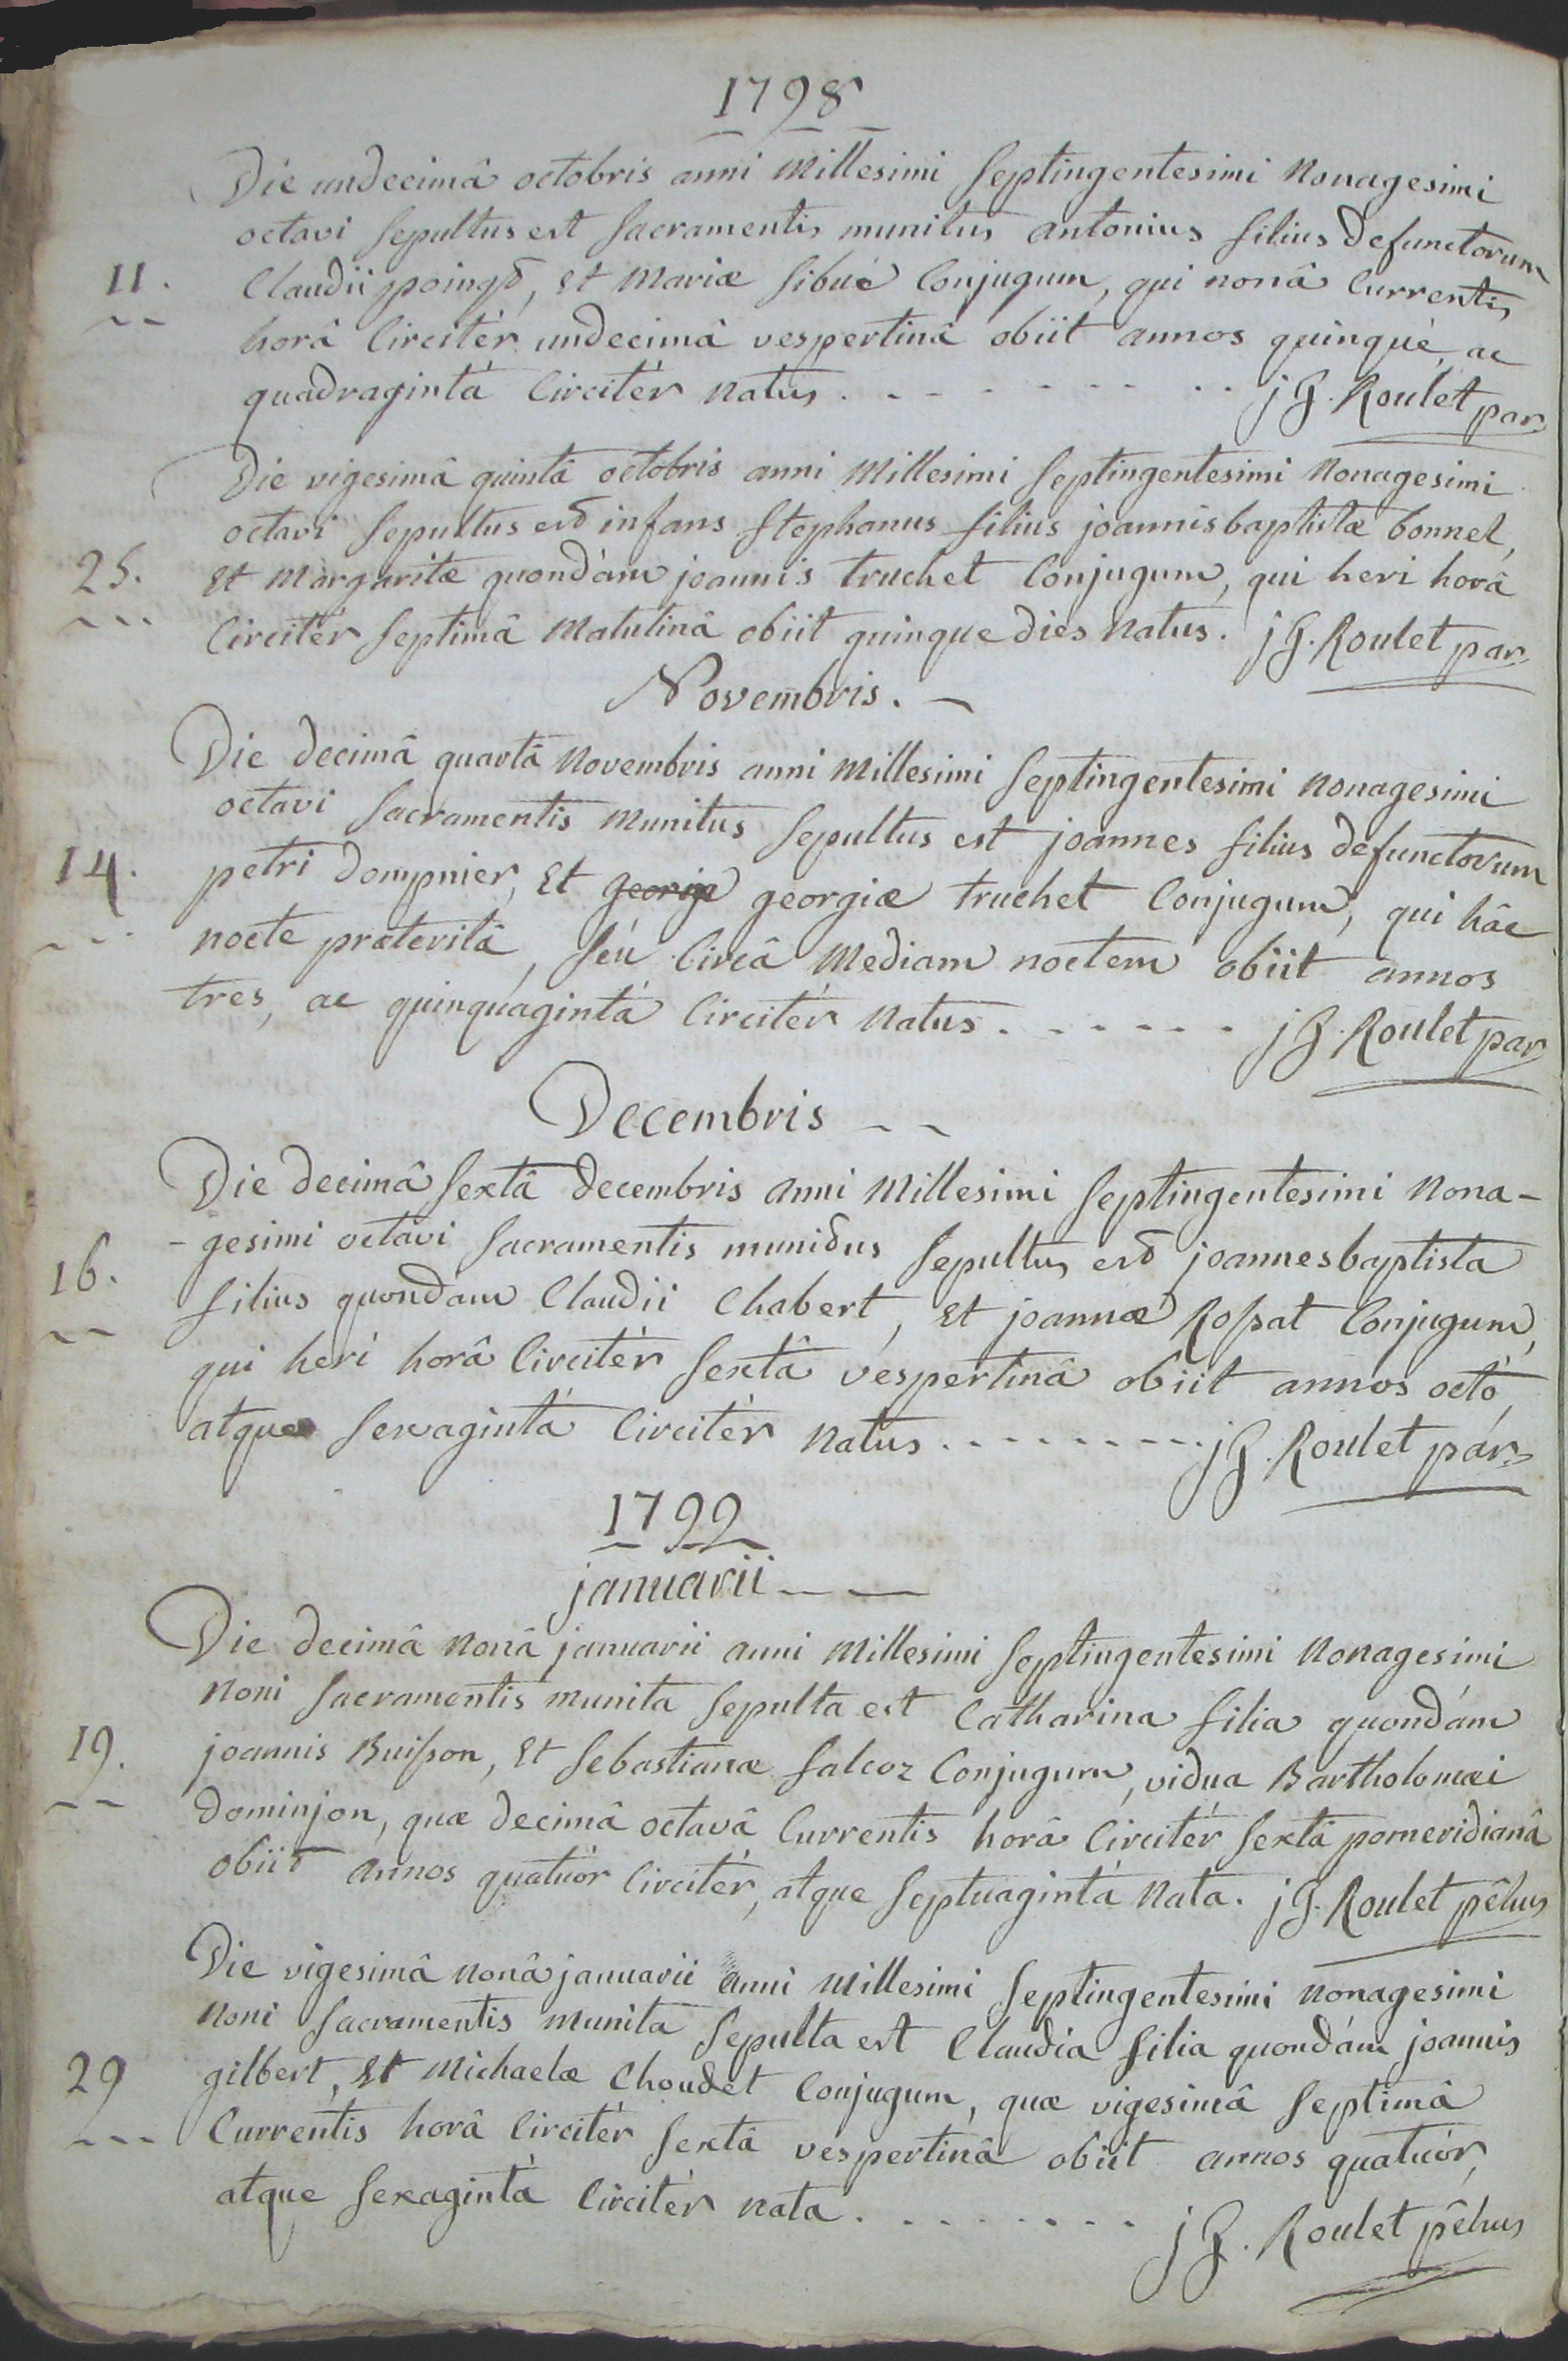 1798
Die undecimâ octobris anni Millesimi Septingentesimi Nonagesimi
octavi Sepultus est Sacramentis munitus antonius filius defunctorum
11. Claudii poingt, et Mariæ Sibué Conjugum, qui nonâ Currentis
horâ Circitér undecimâ vespertinâ obiit annos quinqué, ac
quadragintá Circitér natus. - - - - - - - - j G. Roulet par
Die vigesimâ quintâ octobris anni Millesimi Septingentesimi Nonagesimi
octavi Sepultus est infans Stephanus filius joannisbaptistæ bonnel,
25. et Margaritæ quondám joannis truchet Conjugum, qui heri horâ
Circitér Septimâ Matutinâ obiit quinque dies natus. j G. Roulet par
Novembris. -
Die decimâ quartâ Novembris anni Millesimi Septingentesimi Nonagesimi
octavi Sacramentis Munitus Sepultus est joannes filius defunctorum
14. petri dompnier, et georgiæ truchet Conjugum, qui hâc
nocte præteritâ, Séu Circâ Mediam noctem obiit annos
tres, ac quinquagintá Circitér natus. - - - - - - j G. Roulet par
Decembris - -
Die decimâ Sextâ decembris anni Millesimi Septingentesimi Nona-
-gesimi octavi Sacramentis munitus Sepultus est joannesbaptista
16. filius quondám Claudii Chabert, et joannæ Rossat Conjugum,
qui heri horâ Circitér Sextâ vespertinâ obiit annos octó,
atque Sexagintá Circitér natus. - - - - - - - - j G. Roulet par
1799
januarii - -
Die decimâ nonâ januarii anni Millesimi Septingentesimi Nonagesimi
Noni Sacramentis munita Sepulta est Catharina filia quondám
19. joannis Buisson, et Sebastianæ falcoz Conjugum, vidua Bartholomæi
dominjon, quæ decimâ octavâ Currentis horâ Circitér Sextâ pomeridianâ
obiit annos quatuór Circitér, atque Septuagintá Nata. j G. Roulet pêhus
Die vigesimâ nonâ januarii anni Millesimi Septingentesimi nonagesimi
Noni Sacramentis munita Sepulta est Claudia filia quondám joannis
29 gilbert, et Michaelæ Choudet Conjugum, quæ vigesimâ Septimâ
Currentis horâ Circitér Sextâ vespertinâ obiit annos quatuór,
atque Sexagintá Circitér nata. - - - - - - - j G. Roulet pêhus